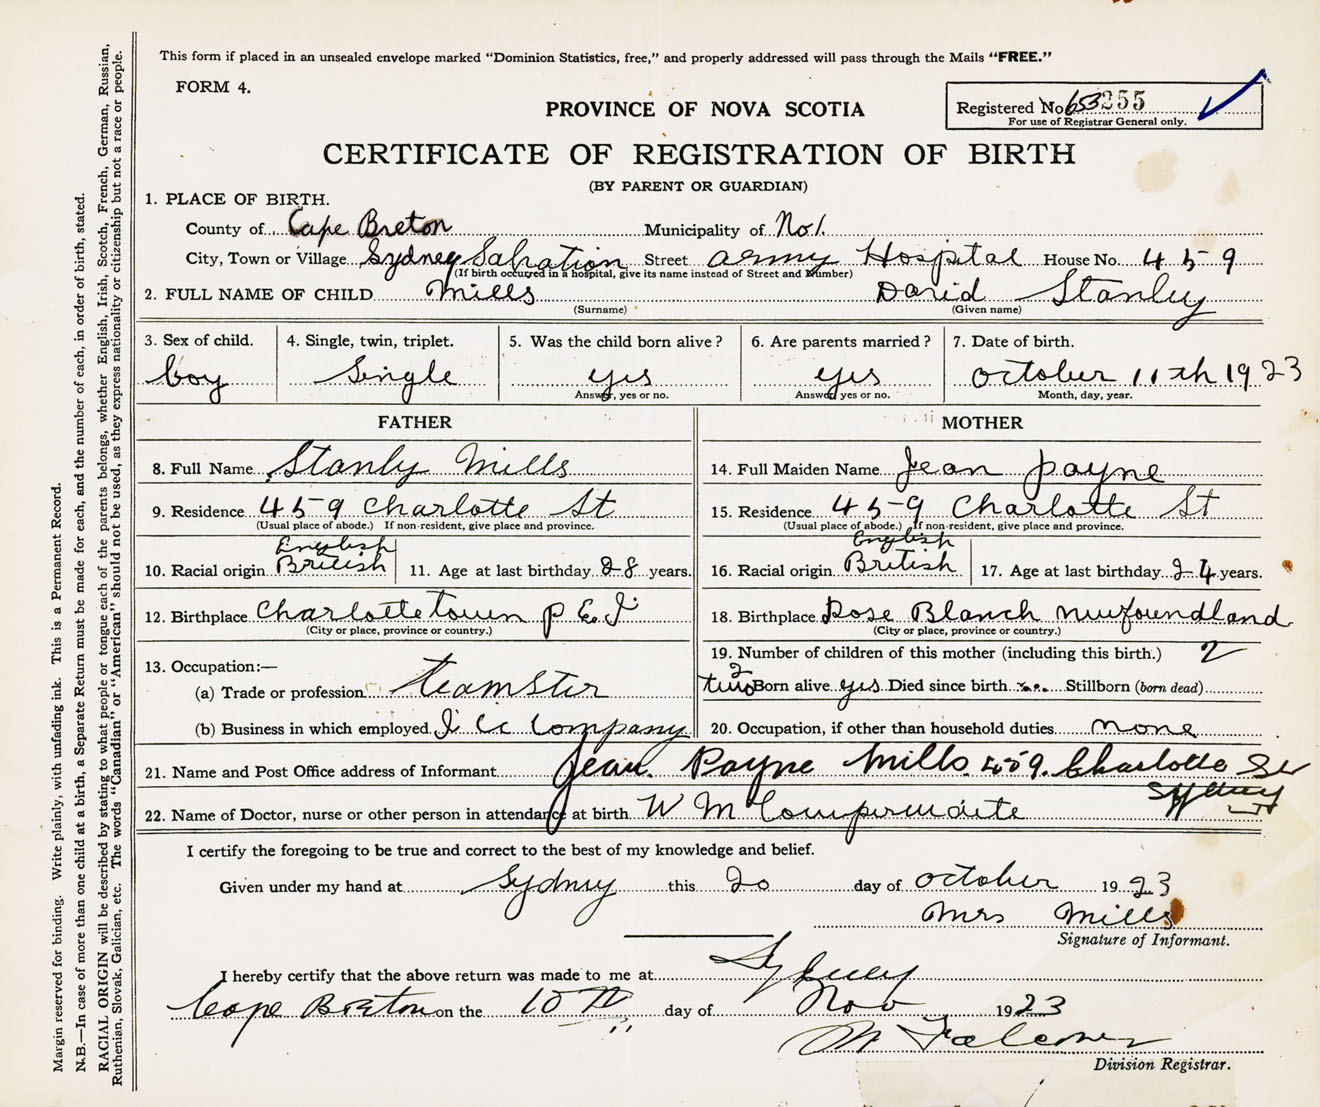 This form if placed in an unsealed envelope marked "Dominion Statistics, free," and properly addressed will pass through the Mails "FREE."
FORM 4.
PROVINCE OF NOVA SCOTIA
Registered No 653255
For use of Registrar General only.
CERTIFICATE OF REGISTRATION OF BIRTH
(BY PARENT OR GUARDIAN)
1. PLACE OF BIRTH.
County of Cape Breton Municipality of No 1.
City, Town or Village Sydney Salvation Street army Hospital House No. 459
(If birth occurred in a hospital, give its name instead of Street and Number)
2. FULL NAME OF CHILD Mills David Stanley
(Surname) (Given name)
3. Sex of child. 4. Single, twin, triplet. 5. Was the child born alive? 6. Are parents married? 7. Date of birth.
boy Single yes yes October 11th 1923
Answer, yes or no. Answer, yes or no. Month, day, year.
FATHER MOTHER
8. Full Name Stanly Mills 14. Full Maiden Name Jean payne
9. Residence 459 Charlotte St 15. Residence 459 Charlotte St
(Usual place of abode.) If non-resident, give place and province. (Usual place of abode.) If non-resident, give place and province.
English English
10. Racial origin British 11. Age at last birthday 28 years. 16. Racial origin British 17. Age at last birthday 24 years.
12. Birthplace Charlottetown P E I 18. Birthplace Rose Blanch Newfoundland
(City or place, province or country.) (City or place, province or country.)
13. Occupation:— 19. Number of children of this mother (including this birth.) 2
2
(a) Trade or profession teamster two Born alive yes Died since birth Stillborn (born dead)
(b) Business in which employed Company 20. Occupation, if other than household duties none
21. Name and Post Office address of Informant Jean Payne Mills 459. Charlotte St
Sydney
22. Name of Doctor, nurse or other person in attendance at birth W M
I certify the foregoing to be true and correct to the best of my knowledge and belief.
Given under my hand at Sydney this 20 day of October 1923
Mrs Mills
Signature of Informant.
I hereby certify that the above return was made to me at Sydney
Cape Breton on the 10th day of Nov 1923
Division Registrar.
Margin reserved for binding. Write plainly, with unfading ink. This is a Permanent Record.
N.B.—In case of more than one child at a birth, a Separate Return must be made for each, and the number of each, in order of birth, stated.
RACIAL ORIGIN will be described by stating to what people or tongue each of the parents belongs, whether English, Irish, Scotch, French, German, Russian,
Ruthenian, Slovak, Galician, etc. The words "Canadian" or "American" should not be used, as they express nationality or citizenship but not a race or people.